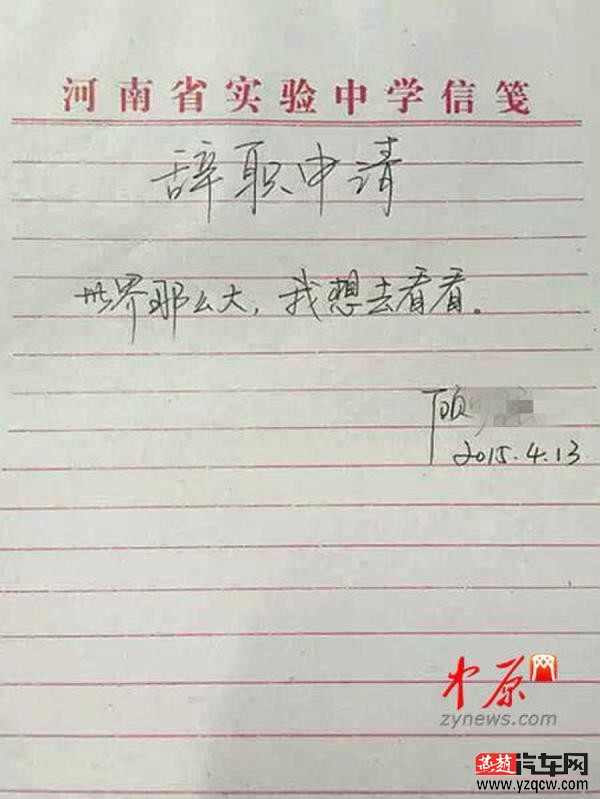 河南省实验中学信笺
辞职申请
世界那么大，我想去看看。
顾
2015.4.13
中原网
zynews.com
燕赵汽车网
www.yzqcw.com